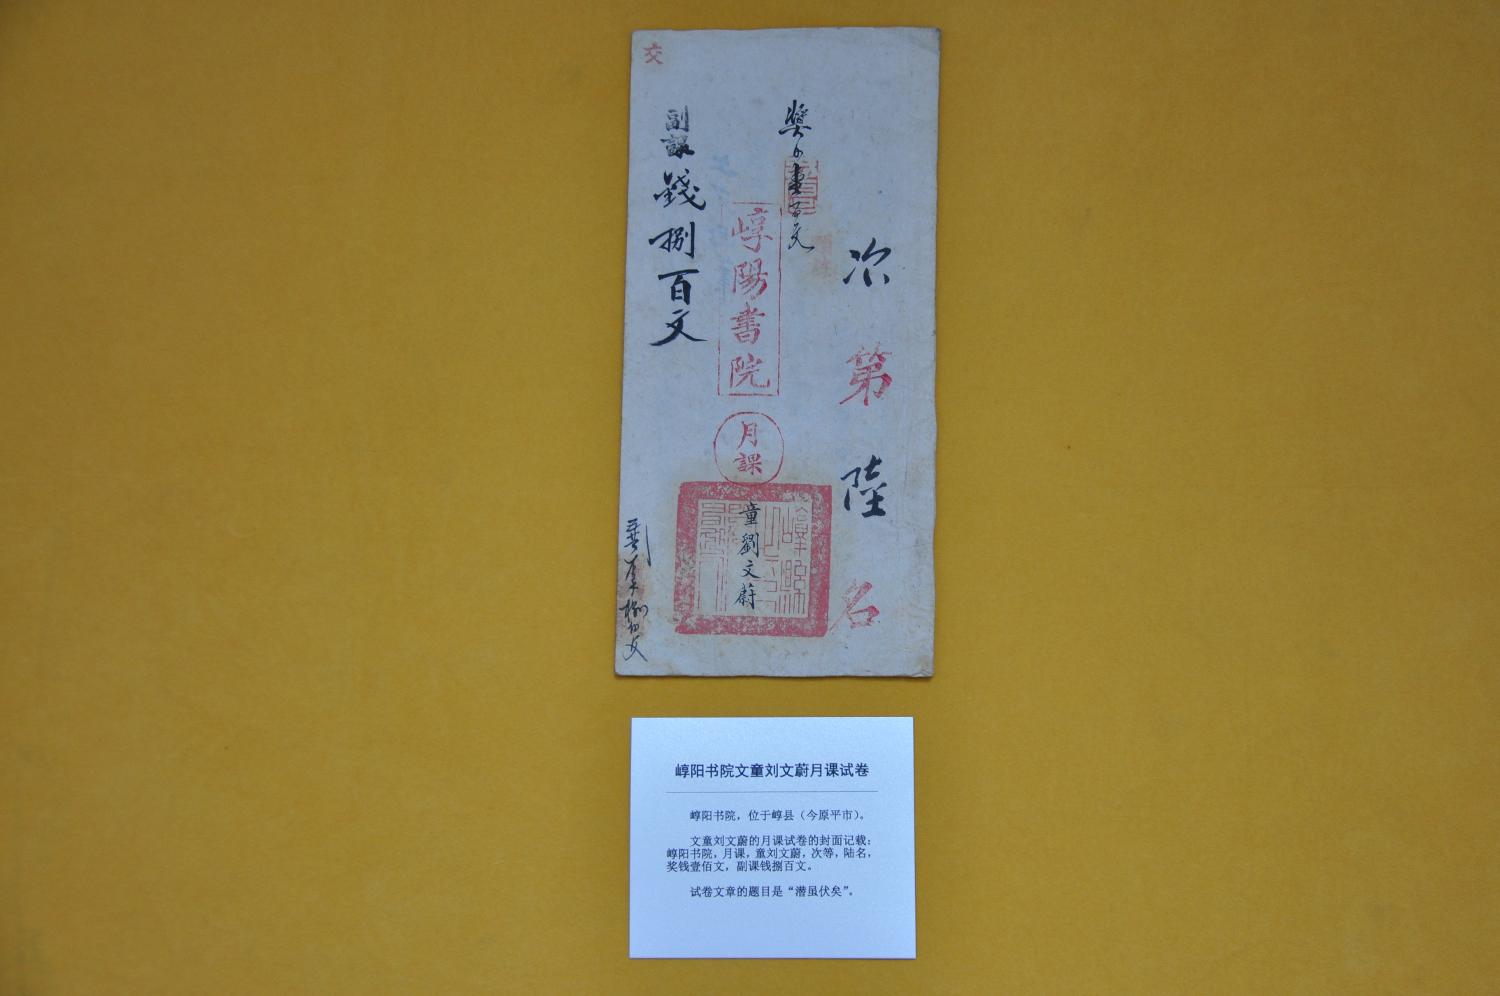 交
次第陸名
奬錢壹百文
崞陽書院
月課
童劉文蔚
副課錢捌百文
崞阳书院文童刘文蔚月课试卷
崞阳书院，位于崞县（今原平市）。
文童刘文蔚的月课试卷的封面记载：
崞阳书院，月课，童刘文蔚，次等，陆名，
奖钱壹佰文，副课钱捌百文。
试卷文章的题目是“潜虽伏矣”。